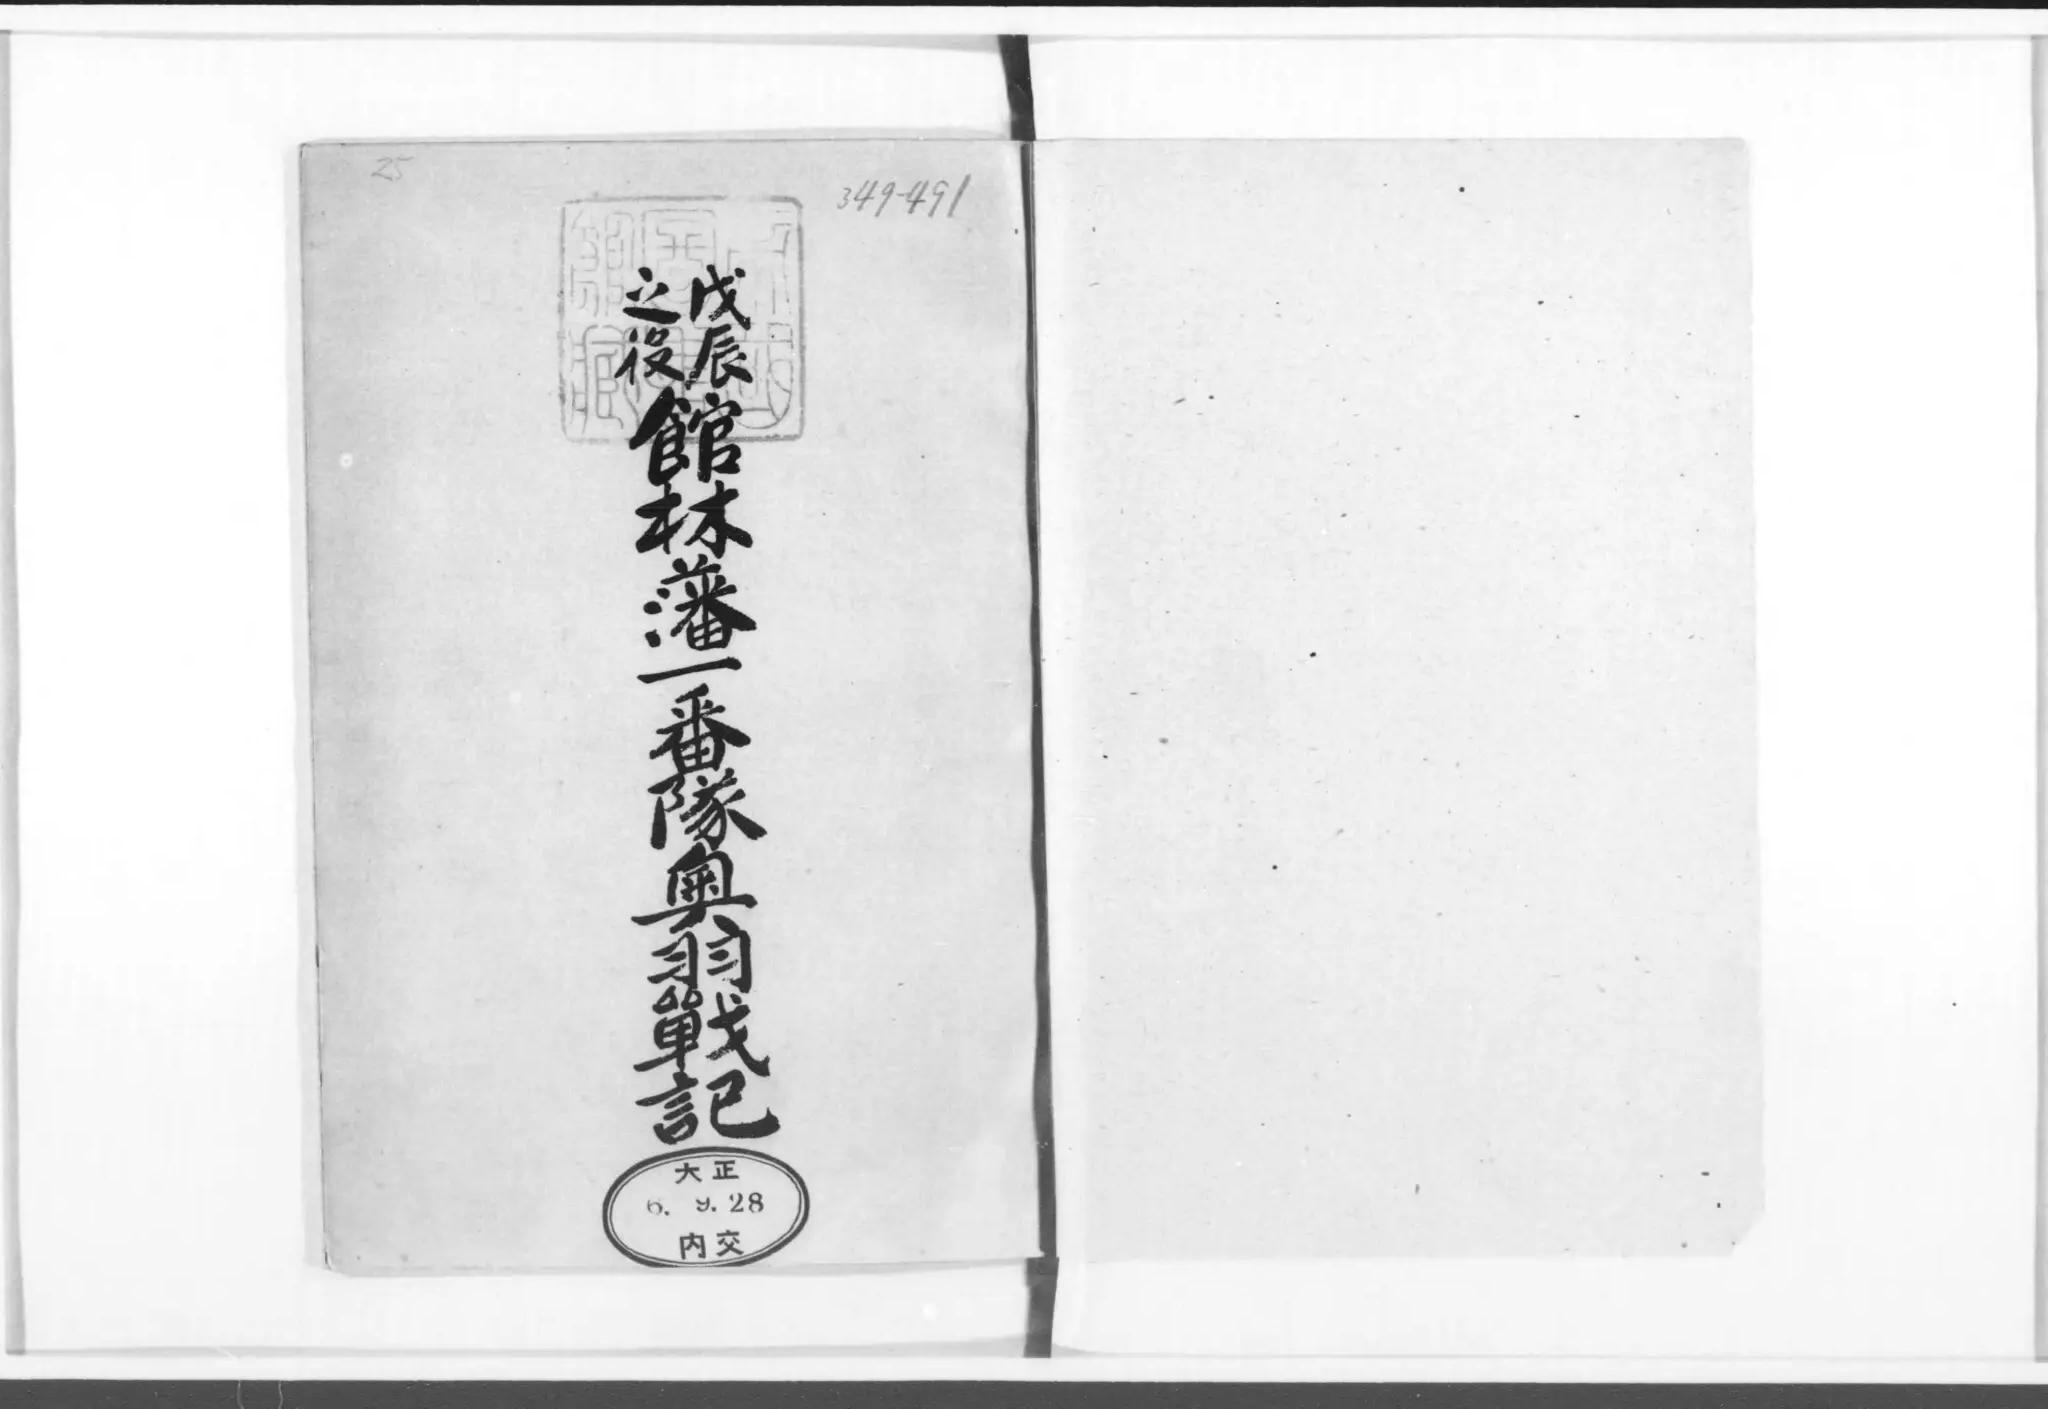 25
349-491
戊辰
之役
館林藩一番隊奥羽戰記
大正
6. 9. 28
内交